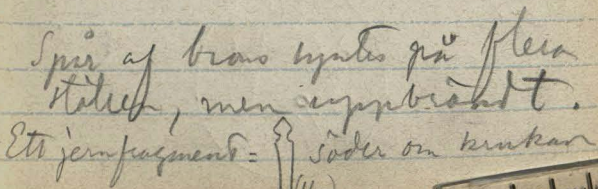 Spår af brons syntes på flera
ställen, men uppbrändt.
Ett jernfragment = söder om krukan